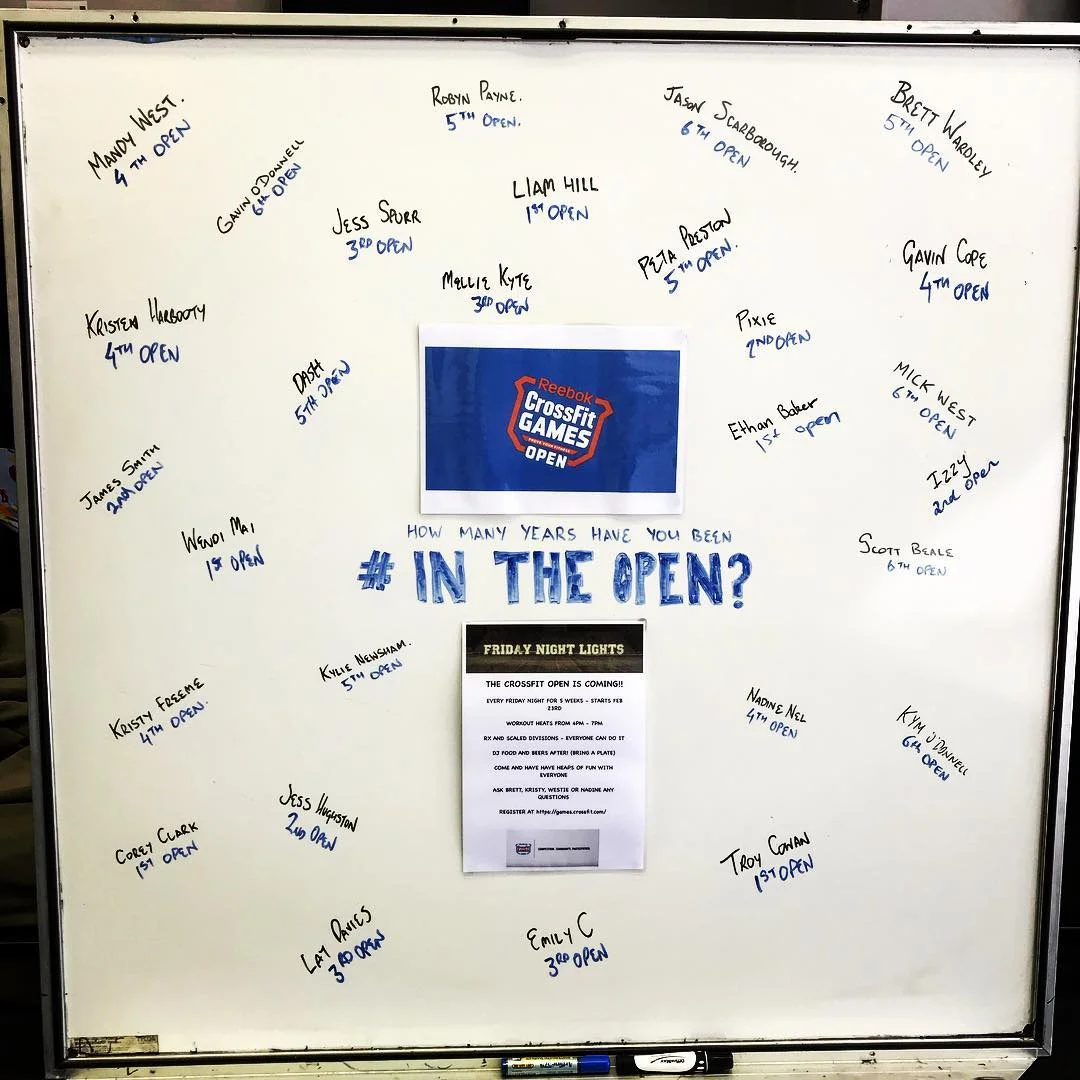 MANDY WEST.
4TH OPEN
ROBYN PAYNE.
5TH OPEN.
JASON SCARBOROUGH.
6TH OPEN
BRETT WARDLEY
5TH OPEN
GAVIN O'DONNELL
6th OPEN
JESS SPURR
3RD OPEN
LIAM HILL
1ST OPEN
PETA PRESTON
5TH OPEN.
GAVIN COPE
4TH OPEN
MELLIE KYTE
3RD OPEN
KRISTEN HARBOTTY
4TH OPEN
PIXIE
2ND OPEN
DASH
5TH OPEN
MICK WEST
6TH OPEN
Ethan Baker
1st open
Reebok
CrossFit
GAMES
PROVE YOUR FITNESS
OPEN
JAMES SMITH
2nd OPEN
IZZY
2nd OPEN
WENDI MAI
1ST OPEN
HOW MANY YEARS HAVE YOU BEEN
# IN THE OPEN?
SCOTT BEALE
6TH OPEN
FRIDAY NIGHT LIGHTS
THE CROSSFIT OPEN IS COMING!!
EVERY FRIDAY NIGHT FOR 5 WEEKS - STARTS FEB
23RD
WORKOUT HEATS FROM 4PM - 7PM
RX AND SCALED DIVISIONS - EVERYONE CAN DO IT
DJ FOOD AND BEERS AFTER! (BRING A PLATE)
COME AND HAVE HAVE HEAPS OF FUN WITH
EVERYONE
ASK BRETT, KRISTY, WESTIE OR NADINE ANY
QUESTIONS
REGISTER AT https://games.crossfit.com/
KYLIE NEWSHAM.
5TH OPEN
KRISTY FREEME
4TH OPEN.
NADINE NEL
4TH OPEN
KYM O'DONNELL
6th OPEN
JESS HUGHSTON
2ND OPEN
COREY CLARK
1ST OPEN
TROY COWAN
1ST OPEN
LAY DAVIES
3RD OPEN
EMILY C
3RD OPEN
OfficeMax